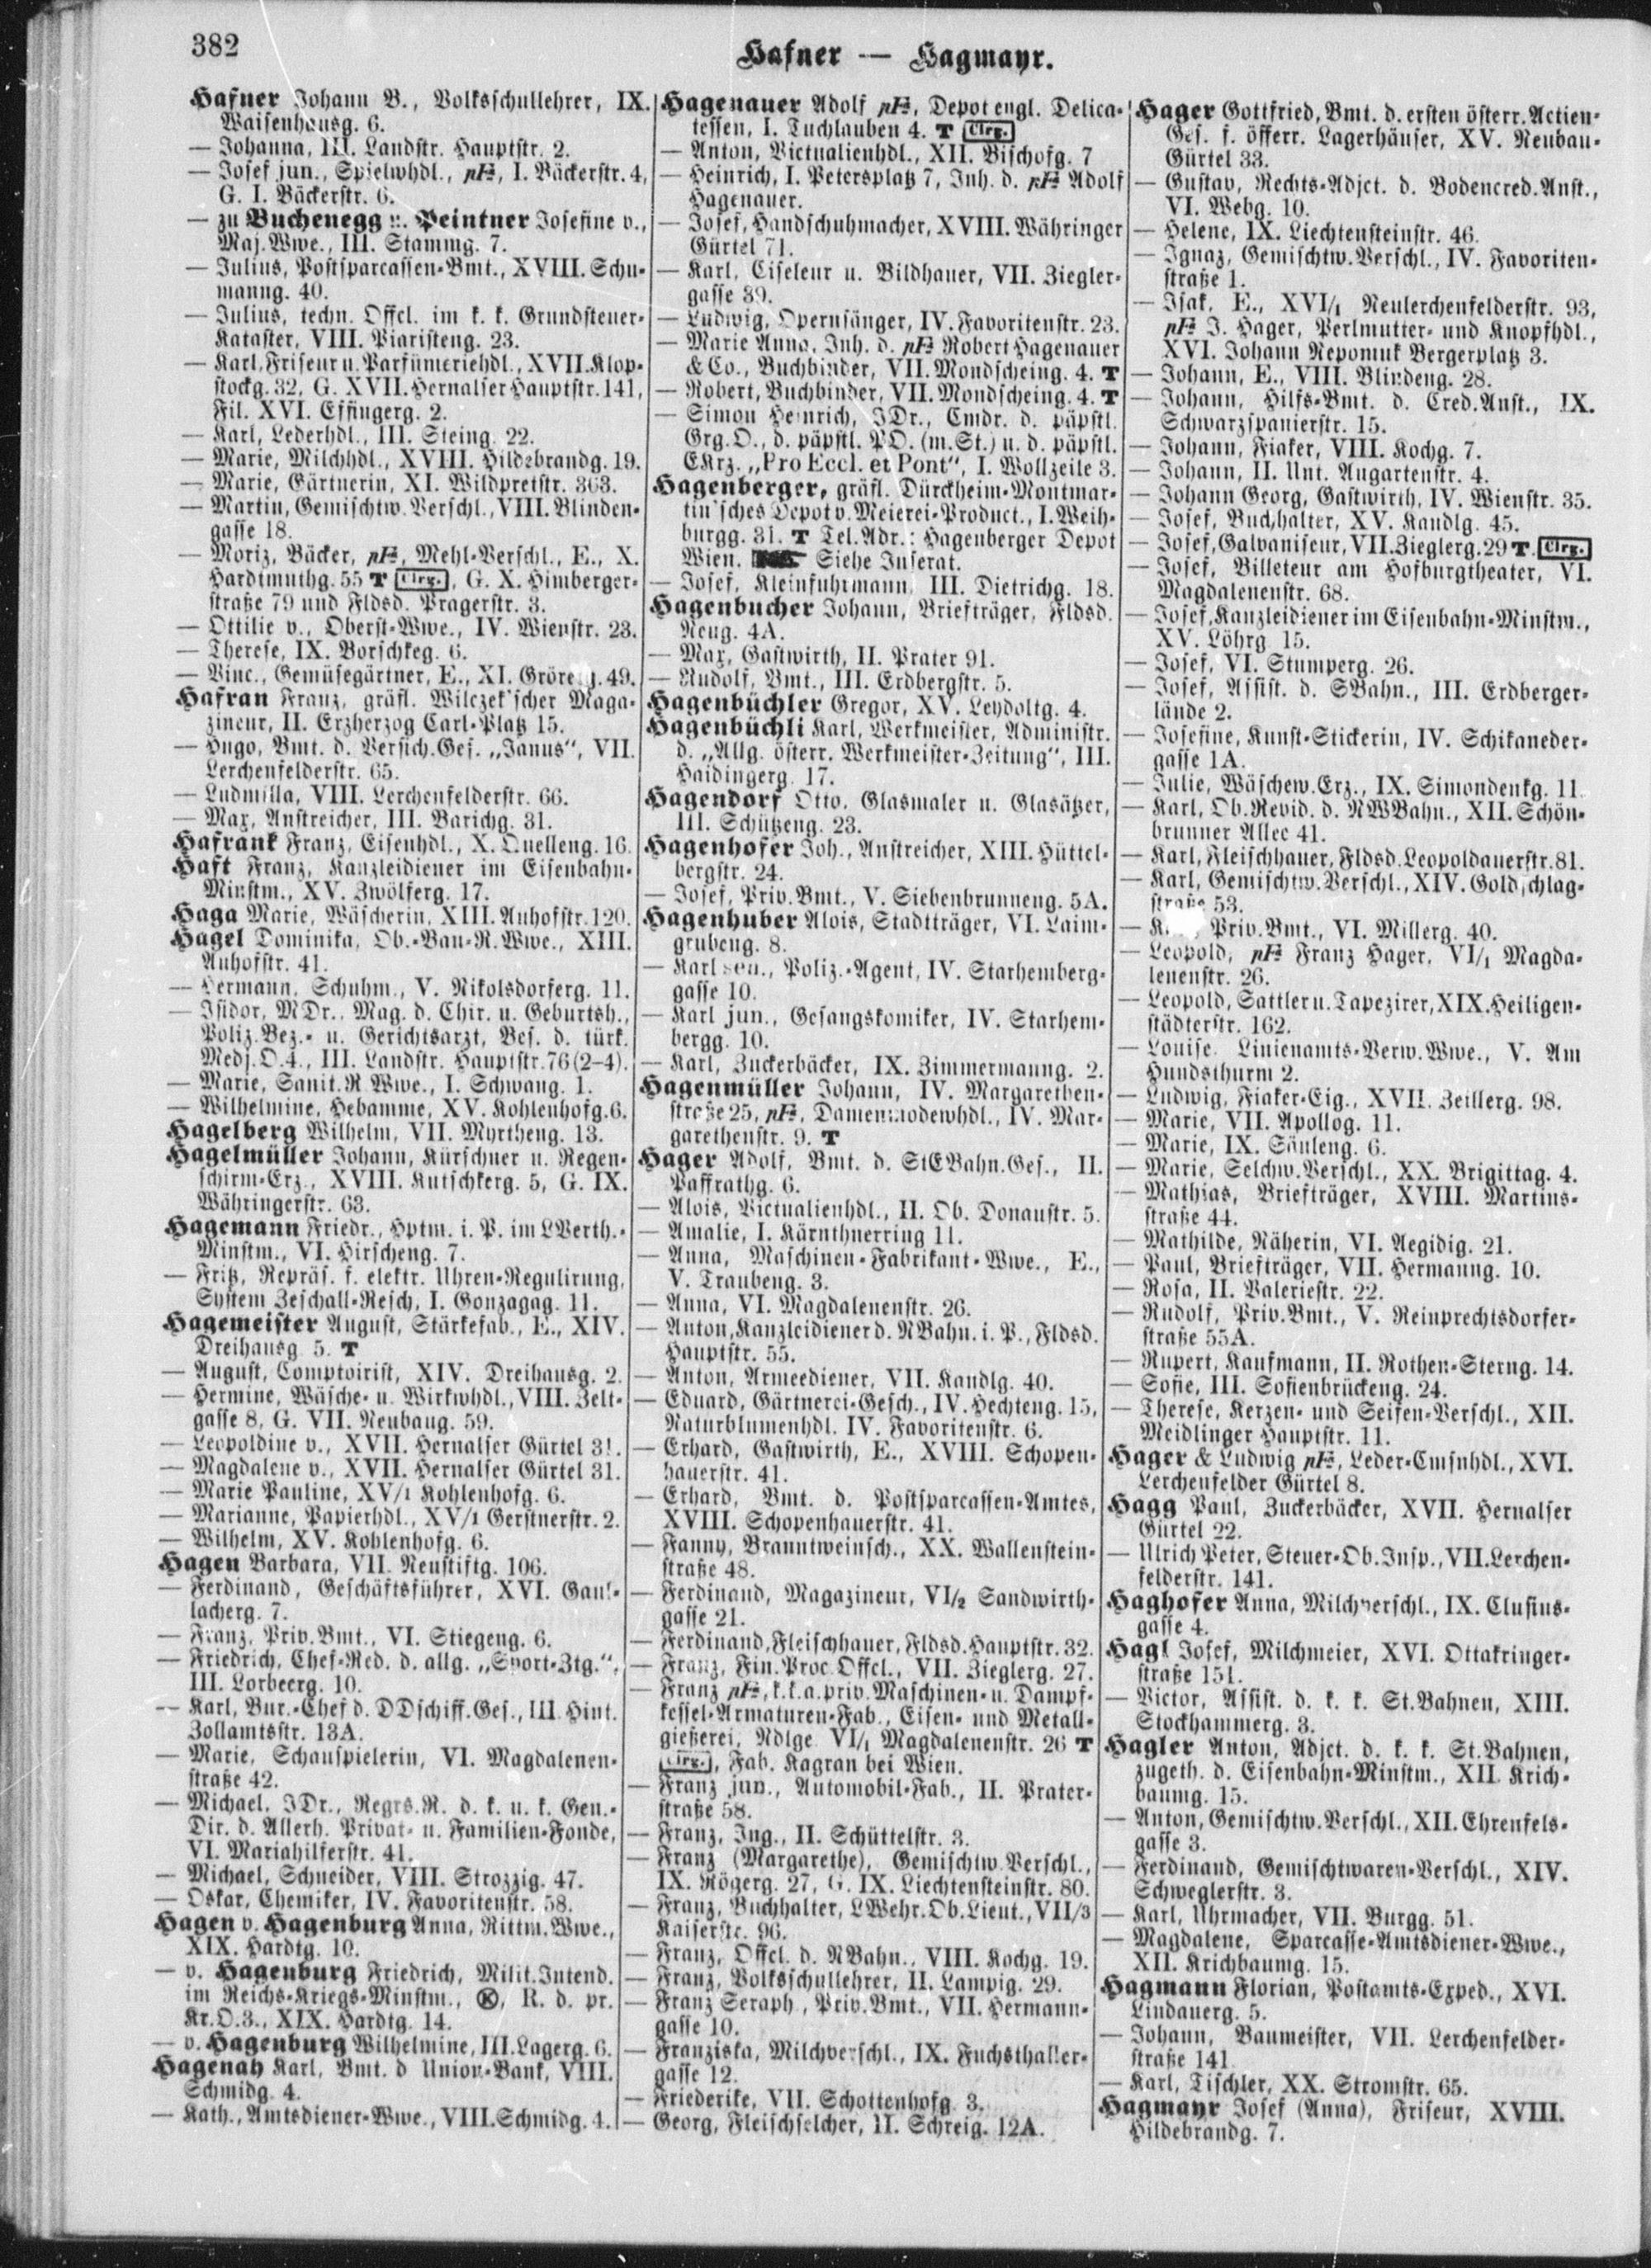 382
Hafner — Hagmayr.
Hafner Johann B., Volksschullehrer, IX.
Waisenhausg. 6.
— Johanna, III. Landstr. Hauptstr. 2.
— Josef jun., Spielwhdl., pFa, I. Bäckerstr. 4,
G. I. Bäckerstr. 6.
— zu Buchenegg u. Peintner Josefine v.,
Maj. Wwe., III. Stammg. 7.
— Julius, Postsparcassen-Bmt., XVIII. Schu-
manng. 40.
— Julius, techn. Offcl. im k. k. Grundsteuer-
Kataster, VIII. Piaristeng. 23.
— Karl, Friseur u. Parfümeriehdl., XVII. Klop-
stockg. 32, G. XVII. Hernalser Hauptstr. 141,
Fil. XVI. Effingerg. 2.
— Karl, Lederhdl., III. Steing. 22.
— Marie, Milchhdl., XVIII. Hildebrandg. 19.
— Marie, Gärtnerin, XI. Wildpretstr. 363.
— Martin, Gemischtw. Verschl., VIII. Blinden-
gasse 18.
— Moriz, Bäcker, pFa, Mehl-Verschl., E., X.
Hardtmuthg. 55 T Clrg., G. X. Himberger-
straße 79 und Fldsd. Pragerstr. 3.
— Ottilie v., Oberst-Wwe., IV. Wienstr. 23.
— Therese, IX. Borschkeg. 6.
— Vinc., Gemüsegärtner, E., XI. 49.
Hafran Franz, gräfl. Wilczek'scher Maga-
zineur, II. Erzherzog Carl-Platz 15.
— Hugo, Bmt. d. Versich. Ges. „Janus", VII.
Lerchenfelderstr. 65.
— Ludmilla, VIII. Lerchenfelderstr. 66.
— Max, Anstreicher, III. Barichg. 31.
Hafrank Franz, Eisenhdl., X. Quelleng. 16.
Haft Franz, Kanzleidiener im Eisenbahn-
Minstm., XV. Zwölferg. 17.
Haga Marie, Wäscherin, XIII. Auhofstr. 120.
Hagel Dominika, Ob.-Bau-R. Wwe., XIII.
Auhofstr. 41.
— Hermann, Schuhm., V. Nikolsdorferg. 11.
— Isidor, MDr., Mag. d. Chir. u. Geburtsh.,
Poliz. Bez.- u. Gerichtsarzt, Bes. d. türk.
Medj. O. 4., III. Landstr. Hauptstr. 76 (2–4).
— Marie, Sanit. R. Wwe., I. Schwang. 1.
— Wilhelmine, Hebamme, XV. Kohlenhofg. 6.
Hagelberg Wilhelm, VII. Myrtheng. 13.
Hagelmüller Johann, Kürschner u. Regen-
schirm-Erz., XVIII. Kutschkerg. 5, G. IX.
Währingerstr. 63.
Hagemann Friedr., Hptm. i. P. im LVerth.-
Minstm., VI. Hirscheng. 7.
— Fritz, Repräs. f. elektr. Uhren-Regulirung,
System Zeschall-Resch, I. Gonzagag. 11.
Hagemeister August, Stärkefab., E., XIV.
Dreihausg. 5. T
— August, Comptoirist, XIV. Dreihausg. 2.
— Hermine, Wäsche- u. Wirkwhdl., VIII. Zelt-
gasse 8, G. VII. Neubaug. 59.
— Leopoldine v., XVII. Hernalser Gürtel 31.
— Magdalene v., XVII. Hernalser Gürtel 31.
— Marie Pauline, XV/1 Kohlenhofg. 6.
— Marianne, Papierhdl., XV/1 Gerstnerstr. 2.
— Wilhelm, XV. Kohlenhofg. 6.
Hagen Barbara, VII. Neustiftg. 106.
— Ferdinand, Geschäftsführer, XVI. Gaul-
lacherg. 7.
— Franz, Priv. Bmt., VI. Stiegeng. 6.
— Friedrich, Chef-Red. d. allg. „Sport-Ztg.",
III. Lorbeerg. 10.
— Karl, Bur.-Chef d. DDschiff. Ges., III. Hint.
Zollamtsstr. 13A.
— Marie, Schauspielerin, VI. Magdalenen-
straße 42.
— Michael, JDr., Regrs. R. d. k. u. k. Gen.-
Dir. d. Allerh. Privat- u. Familien-Fonde,
VI. Mariahilferstr. 41.
— Michael, Schneider, VIII. Strozzig. 47.
— Oskar, Chemiker, IV. Favoritenstr. 58.
Hagen v. Hagenburg Anna, Rittm. Wwe.,
XIX. Hardtg. 10.
— v. Hagenburg Friedrich, Milit. Intend.
im Reichs-Kriegs-Minstm., Ⓚ, R. d. pr.
Kr. O. 3., XIX. Hardtg. 14.
— v. Hagenburg Wilhelmine, III. Lagerg. 6.
Hagenah Karl, Bmt. d Union-Bank, VIII.
Schmidg. 4.
— Kath., Amtsdiener-Wwe., VIII. Schmidg. 4.
Hagenauer Adolf pFa, Depot engl. Delica-
tessen, I. Tuchlauben 4. T Clrg.
— Anton, Victualienhdl., XII. Bischofg. 7
— Heinrich, I. Petersplatz 7, Inh. d. pFa Adolf
Hagenauer.
— Josef, Handschuhmacher, XVIII. Währinger
Gürtel 71.
— Karl, Ciseleur u. Bildhauer, VII. Ziegler-
gasse 39.
— Ludwig, Opernsänger, IV. Favoritenstr. 23.
— Marie Anna, Inh. d. pFa Robert Hagenauer
& Co., Buchbinder, VII. Mondscheing. 4. T
— Robert, Buchbinder, VII. Mondscheing. 4. T
— Simon Heinrich, JDr., Cmdr. d. päpstl.
Grg. O., d. päpstl. PO. (m. St.) u. d. päpstl.
EKrz. „Pro Eccl. et Pont", I. Wollzeile 3.
Hagenberger, gräfl. Dürckheim-Montmar-
tin'sches Depot v. Meierei-Product., I. Weih-
burgg. 31. T Tel. Adr.: Hagenberger Depot
Wien. Siehe Inserat.
— Josef, Kleinfuhrmann, III. Dietrichg. 18.
Hagenbucher Johann, Briefträger, Fldsd.
Neug. 4A.
— Max, Gastwirth, II. Prater 91.
— Rudolf, Bmt., III. Erdbergstr. 5.
Hagenbüchler Gregor, XV. Leydoltg. 4.
Hagenbüchli Karl, Werkmeister, Administr.
d. „Allg. österr. Werkmeister-Zeitung", III.
Haidingerg. 17.
Hagendorf Otto, Glasmaler u. Glasätzer,
III. Schützeng. 23.
Hagenhofer Joh., Anstreicher, XIII. Hüttel-
bergstr. 24.
— Josef, Priv. Bmt., V. Siebenbrunneng. 5A.
Hagenhuber Alois, Stadtträger, VI. Laim-
grubeng. 8.
— Karl sen., Poliz.-Agent, IV. Starhemberg-
gasse 10.
— Karl jun., Gesangskomiker, IV. Starhem-
bergg. 10.
— Karl, Zuckerbäcker, IX. Zimmermanng. 2.
Hagenmüller Johann, IV. Margarethen-
straße 25, pFa, Damenmodewhdl., IV. Mar-
garethenstr. 9. T
Hager Adolf, Bmt. d. StEBahn. Ges., II.
Paffrathg. 6.
— Alois, Victualienhdl., II. Ob. Donaustr. 5.
— Amalie, I. Kärnthnerring 11.
— Anna, Maschinen-Fabrikant-Wwe., E.,
V. Traubeng. 3.
— Anna, VI. Magdalenenstr. 26.
— Anton, Kanzleidiener d. NBahn. i. P., Fldsd.
Hauptstr. 55.
— Anton, Armeediener, VII. Kandlg. 40.
— Eduard, Gärtnerei-Gesch., IV. Hechteng. 15,
Naturblumenhdl. IV. Favoritenstr. 6.
— Erhard, Gastwirth, E., XVIII. Schopen-
hauerstr. 41.
— Erhard, Bmt. d. Postsparcassen-Amtes,
XVIII. Schopenhauerstr. 41.
— Fanny, Branntweinsch., XX. Wallenstein-
straße 48.
— Ferdinand, Magazineur, VI/2 Sandwirth-
gasse 21.
— Ferdinand, Fleischhauer, Fldsd. Hauptstr. 32.
— Franz, Fin. Proc. Offcl., VII. Zieglerg. 27.
— Franz pFa, k. k. a. priv. Maschinen- u. Dampf-
kessel-Armaturen-Fab., Eisen- und Metall-
gießerei, Ndlge. VI/1 Magdalenenstr. 26 T
Clrg., Fab. Kagran bei Wien.
— Franz jun., Automobil-Fab., II. Prater-
straße 58.
— Franz, Ing., II. Schüttelstr. 3.
— Franz (Margarethe), Gemischtw. Verschl.,
IX. Rögerg. 27, G. IX. Liechtensteinstr. 80.
— Franz, Buchhalter, LWehr. Ob. Lieut., VII/3
Kaiserstr. 96.
— Franz, Offcl. d. NBahn., VIII. Kochg. 19.
— Franz, Volksschullehrer, II. Lampig. 29.
— Franz Seraph., Priv. Bmt., VII. Hermann-
gasse 10.
— Franziska, Milchverschl., IX. Fuchsthaller-
gasse 12.
— Friederike, VII. Schottenhofg. 3.
— Georg, Fleischselcher, II. Schreig. 12A.
Hager Gottfried, Bmt. d. ersten österr. Actien-
Ges. f. öfferr. Lagerhäuser, XV. Neubau-
Gürtel 33.
— Gustav, Rechts-Adjct. d. Bodencred. Anst.,
VI. Webg. 10.
— Helene, IX. Liechtensteinstr. 46.
— Ignaz, Gemischtw. Verschl., IV. Favoriten-
straße 1.
— Isak, E., XVI/1 Neulerchenfelderstr. 93,
pFa J. Hager, Perlmutter- und Knopfhdl.,
XVI. Johann Nepomuk Bergerplatz 3.
— Johann, E., VIII. Blindeng. 28.
— Johann, Hilfs-Bmt. d. Cred. Anst., IX.
Schwarzspanierstr. 15.
— Johann, Fiaker, VIII. Kochg. 7.
— Johann, II. Unt. Augartenstr. 4.
— Johann Georg, Gastwirth, IV. Wienstr. 35.
— Josef, Buchhalter, XV. Kandlg. 45.
— Josef, Galvaniseur, VII. Zieglerg. 29 T. Clrg.
— Josef, Billeteur am Hofburgtheater, VI.
Magdalenenstr. 68.
— Josef, Kanzleidiener im Eisenbahn-Minstm.,
XV. Löhrg. 15.
— Josef, VI. Stumperg. 26.
— Josef, Assist. d. SBahn., III. Erdberger-
lände 2.
— Josefine, Kunst-Stickerin, IV. Schikaneder-
gasse 1A.
— Julie, Wäschew. Erz., IX. Simondenkg. 11.
— Karl, Ob. Revid. d. NWBahn., XII. Schön-
brunner Allee 41.
— Karl, Fleischhauer, Fldsd. Leopoldauerstr. 81.
— Karl, Gemischtw. Verschl., XIV. Goldschlag-
straße 53.
— Priv. Bmt., VI. Millerg. 40.
— Leopold, pFa Franz Hager, VI/1 Magda-
lenenstr. 26.
— Leopold, Sattler u. Tapezirer, XIX. Heiligen-
städterstr. 162.
— Louise, Linienamts-Verw. Wwe., V. Am
Hundsthurm 2.
— Ludwig, Fiaker-Eig., XVII. Zeillerg. 98.
— Marie, VII. Apollog. 11.
— Marie, IX. Säuleng. 6.
— Marie, Selchw. Verschl., XX. Brigittag. 4.
— Mathias, Briefträger, XVIII. Martins-
straße 44.
— Mathilde, Näherin, VI. Aegidig. 21.
— Paul, Briefträger, VII. Hermanng. 10.
— Rosa, II. Valeriestr. 22.
— Rudolf, Priv. Bmt., V. Reinprechtsdorfer-
straße 55A.
— Rupert, Kaufmann, II. Rothen-Sterng. 14.
— Sofie, III. Sofienbrückeng. 24.
— Therese, Kerzen- und Seifen-Verschl., XII.
Meidlinger Hauptstr. 11.
Hager & Ludwig pFa, Leder-Cmsnhdl., XVI.
Lerchenfelder Gürtel 8.
Hagg Paul, Zuckerbäcker, XVII. Hernalser
Gürtel 22.
— Ulrich Peter, Steuer-Ob. Insp., VII. Lerchen-
felderstr. 141.
Haghofer Anna, Milchverschl., IX. Clusius-
gasse 4.
Hagl Josef, Milchmeier, XVI. Ottakringer-
straße 151.
— Victor, Assist. d. k. k. St. Bahnen, XIII.
Stockhammerg. 3.
Hagler Anton, Adjct. d. k. k. St. Bahnen,
zugeth. d. Eisenbahn-Minstm., XII. Krich-
baumg. 15.
— Anton, Gemischtw. Verschl., XII. Ehrenfels-
gasse 3.
— Ferdinand, Gemischtwaren-Verschl., XIV.
Schweglerstr. 3.
— Karl, Uhrmacher, VII. Burgg. 51.
— Magdalene, Sparcasse-Amtsdiener-Wwe.,
XII. Krichbaumg. 15.
Hagmann Florian, Postamts-Exped., XVI.
Lindauerg. 5.
— Johann, Baumeister, VII. Lerchenfelder-
straße 141.
— Karl, Tischler, XX. Stromstr. 65.
Hagmayr Josef (Anna), Friseur, XVIII.
Hildebrandg. 7.